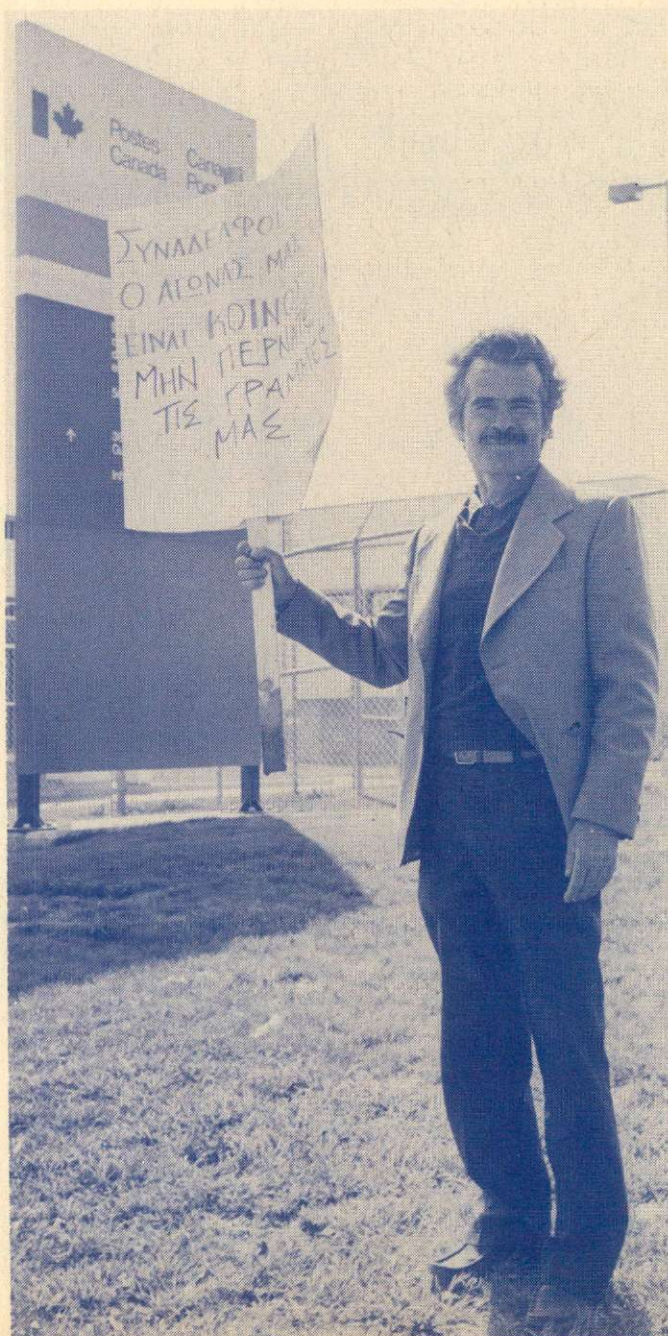 Postes
Canada
Canada
Post
ΣΥΝΑΔΕΛΦΟΙ
Ο ΑΓΩΝΑΣ ΜΑΣ
ΕΙΝΑΙ ΚΟΙΝΟΣ
ΜΗΝ ΠΕΡΝΑΤΕ
ΤΙΣ ΓΡΑΜΜΕΣ
ΜΑΣ